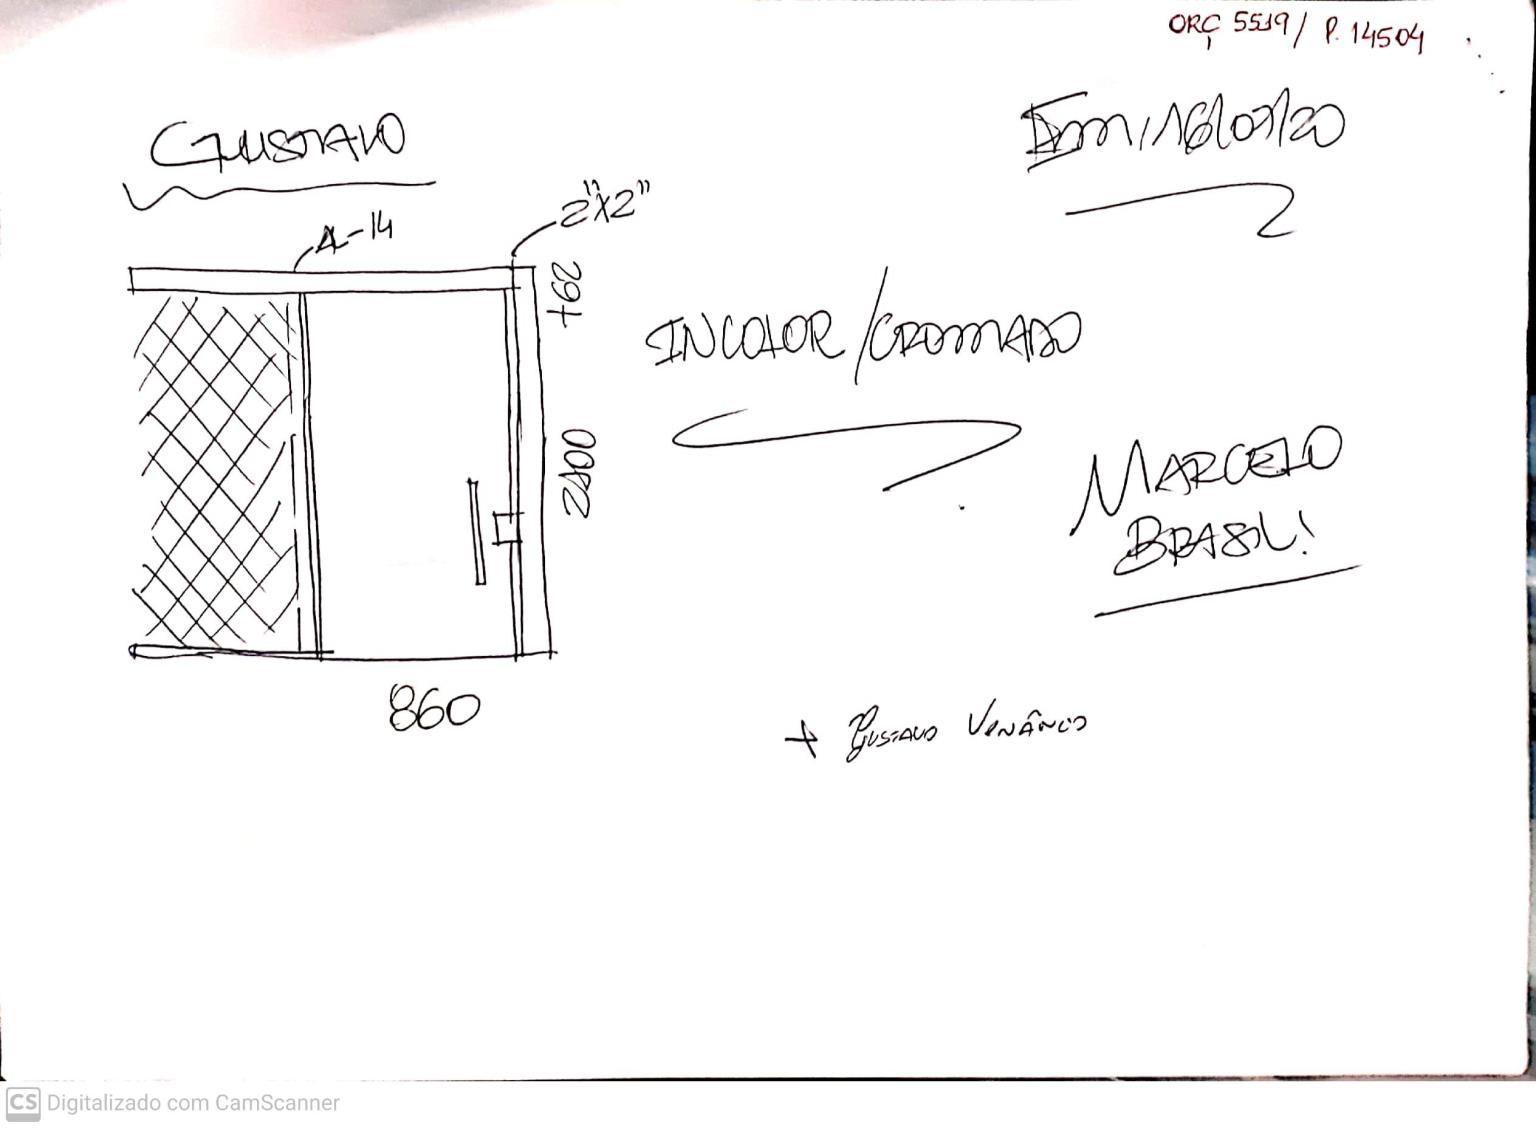 ORÇ 5519 / P. 14504
GUSTAVO
2"X2"
A-14
+62
INCOLOR/CROMADO
2400
MARCELO
BRASIL!
860
+ GUSTAVO VENÂNCIO
CS Digitalizado com CamScanner